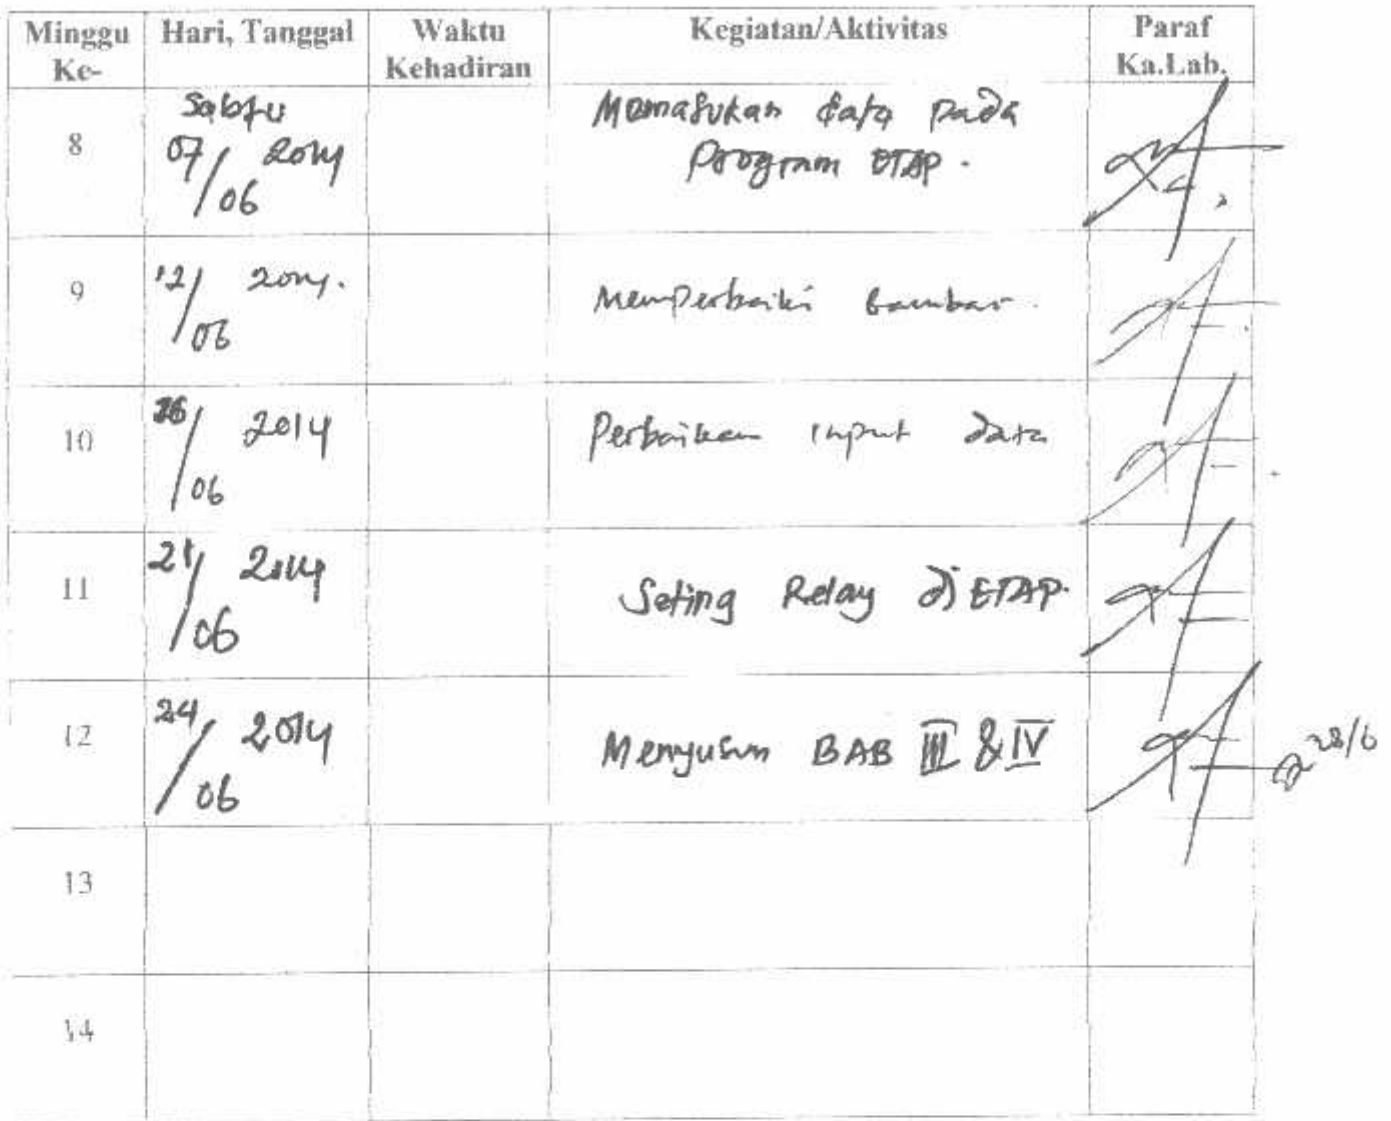 Minggu Ke- Hari, Tanggal Waktu Kehadiran Kegiatan/Aktivitas Paraf Ka.Lab.
8 Sabtu 07/06 2014 Memasukan data pada
Program ETAP.
9 12/06 2014. Memperbaiki Gambar.
10 16/06 2014 Perbaikan input data
11 21/06 2014 Seting Relay di ETAP.
12 24/06 2014 Menyusun BAB III & IV
28/6
13
14